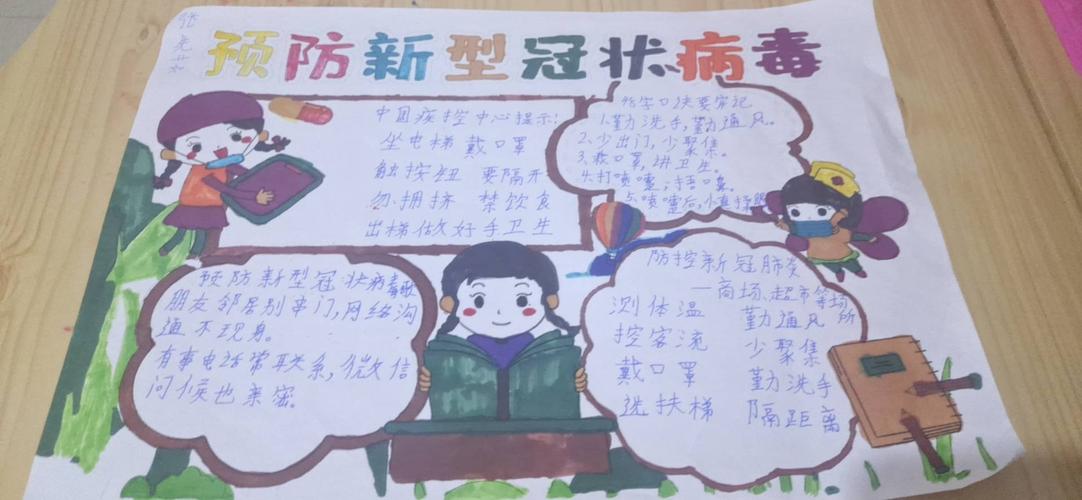 预防新型冠状病毒
中国疾控中心提示:
坐电梯 戴口罩
触按纽 要隔开
勿拥挤 禁饮食
出梯做好手卫生
字口诀要牢记
1.勤洗手,勤通风。
2、少出门,少聚集。
3、戴口罩,讲卫生。
4.打喷嚏,捂口鼻。
5.喷嚏后,小
预防新型冠状病毒歌
朋友邻居别串门,网络沟
通不现身。
有事电话常联系,微信
问候也亲密。
防控新冠肺炎
—商场、超市等场所
测体温 勤通风
控客流 少聚集
戴口罩 勤洗手
选扶梯 隔距离